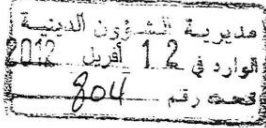 مديرية الشؤون الدينية
الوارد في 12 أفريل 2012
تحت رقم 804